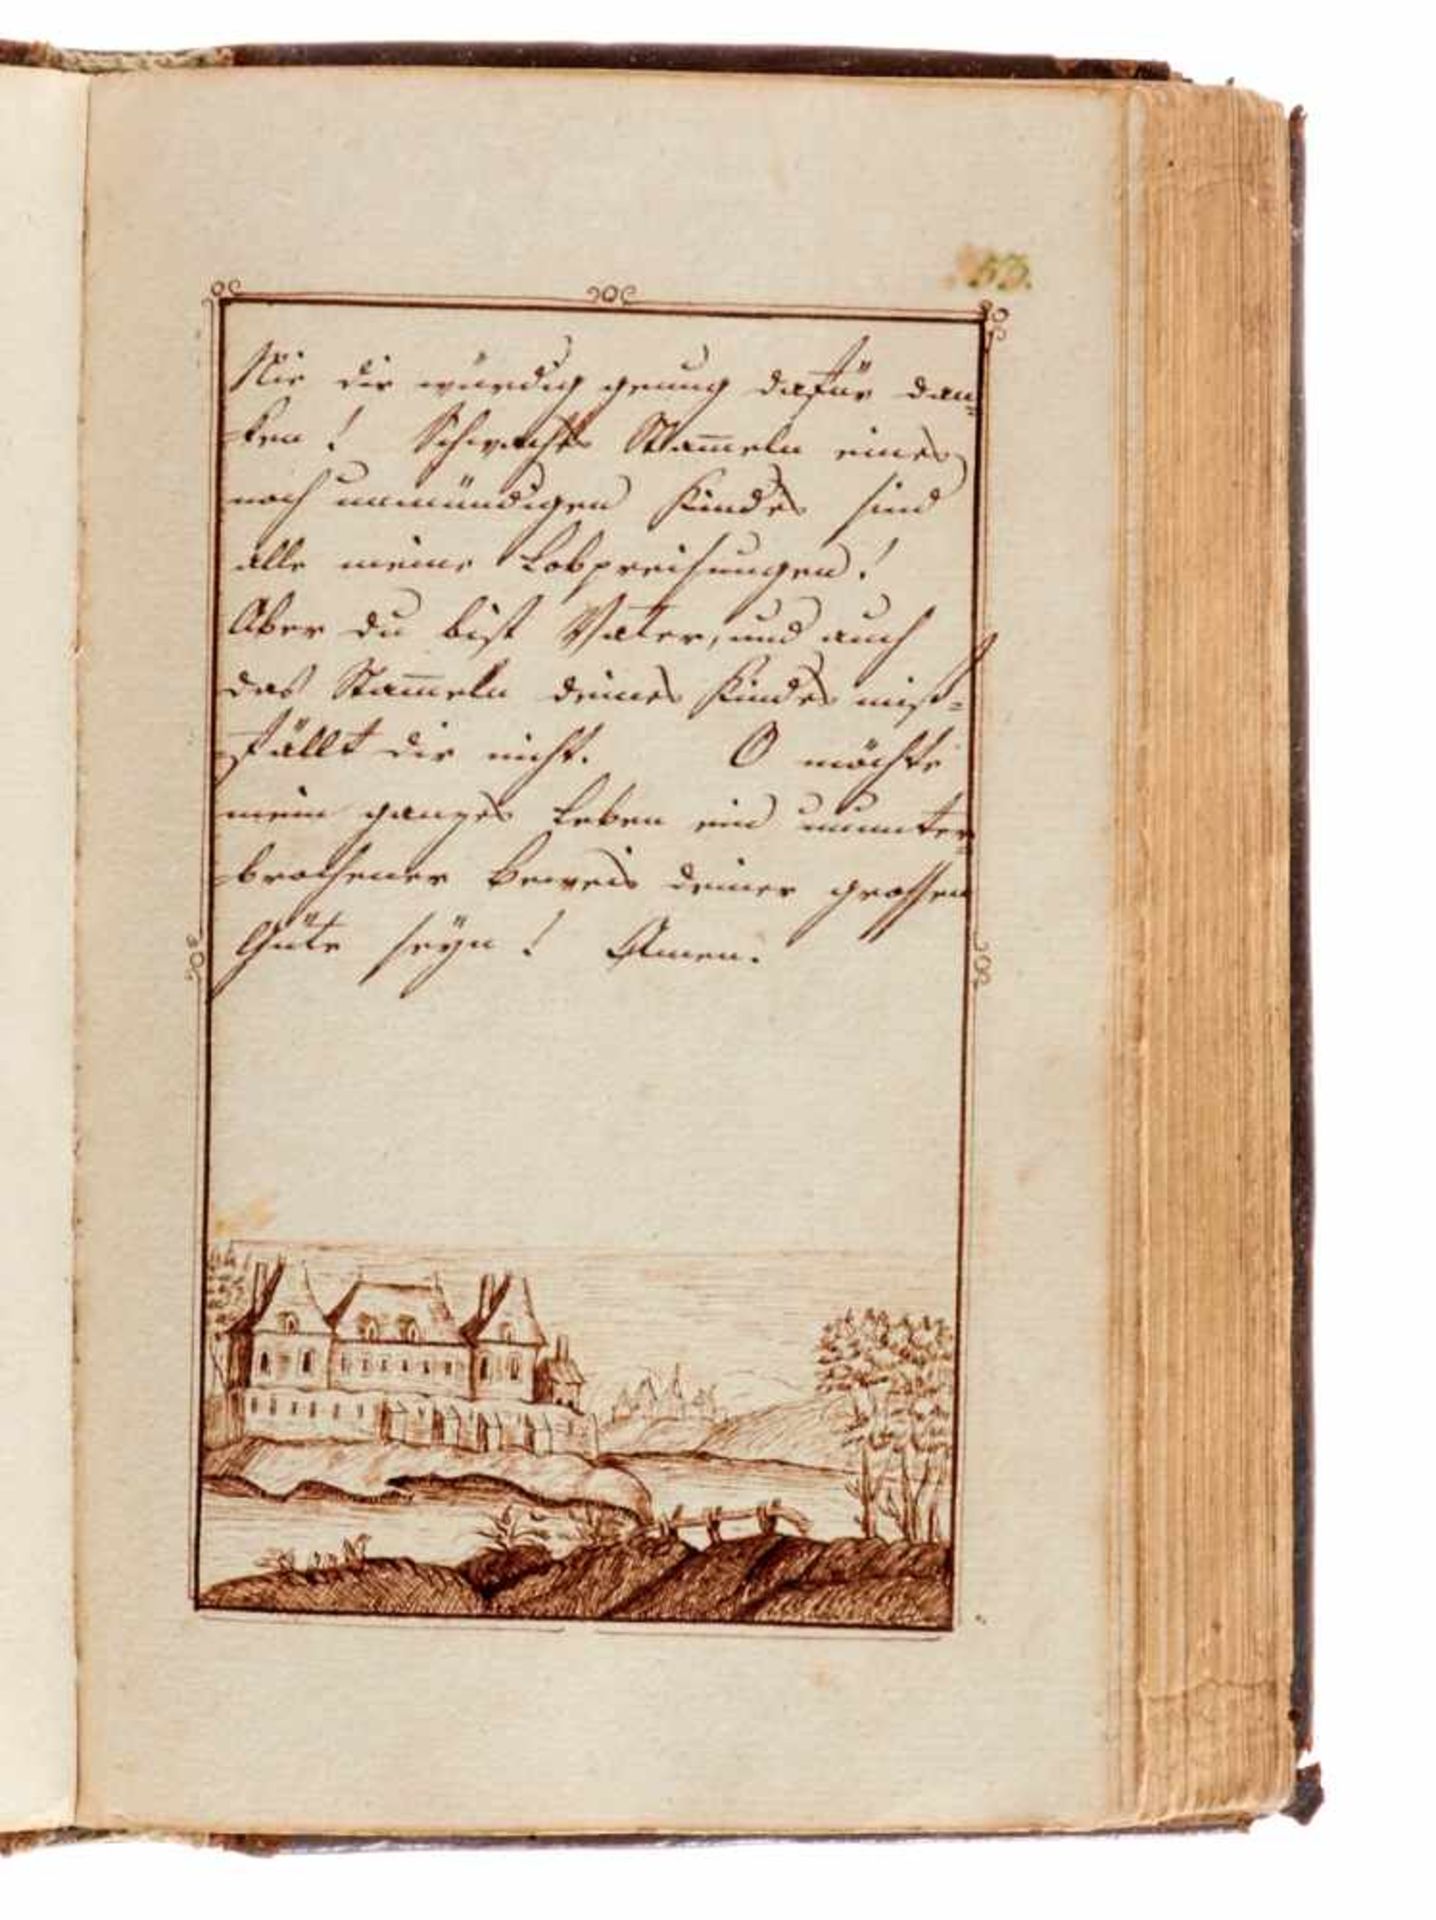 53.
Nie dir würdig genug dafür dan=
ken! Schwaches Stam̅eln eines
noch unmündigen Kindes sind
alle meine Lobpreisungen!
Aber du bist Vater, und auch
das Stam̅eln deines Kindes miß=
fällt dir nicht. O möchte
mein ganzes Leben ein ununter=
brochener Beweis deiner grossen
Güte seyn! Amen.